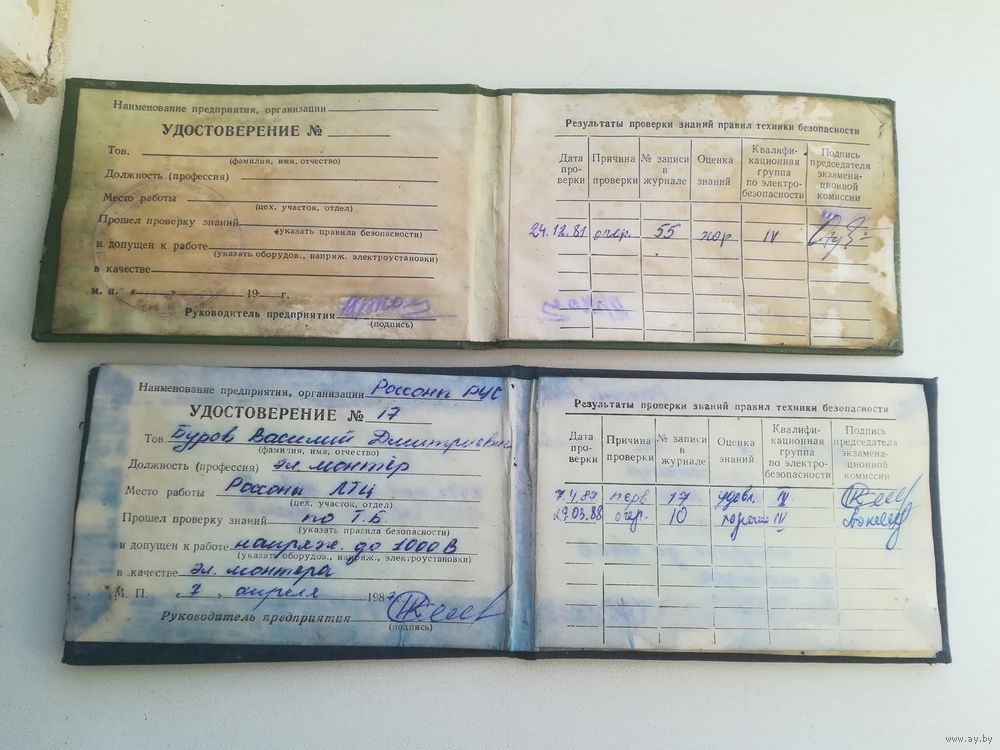 Наименование предприятия, организации
УДОСТОВЕРЕНИЕ №
Тов.
(фамилия, имя, отчество)
Должность (профессия)
Место работы
(цех, участок, отдел)
Прошел проверку знаний
(указать правила безопасности)
и допущен к работе
(указать оборудов., напряж. электроустановки)
в качестве
м. п. « » 19 г.
Руководитель предприятия
(подпись)
Результаты проверки знаний правил техники безопасности
Дата проверки Причина проверки № записи в журнале Оценка знаний Квалификационная группа по электробезопасности Подпись председателя экзаменационной комиссии
24.12.81 очер. 55 хор IV
Наименование предприятия, организации Россоны РУС
УДОСТОВЕРЕНИЕ № 17
Тов. Буров Василий Дмитриевич
(фамилия, имя, отчество)
Должность (профессия) эл. монтёр
Место работы Россоны ЛТЦ
(цех, участок, отдел)
Прошел проверку знаний по Т.Б.
(указать правила безопасности)
и допущен к работе напряж до 1000 В
(указать оборудов., напряж., электроустановки)
в качестве эл. монтера
М. П. « 7 » апреля 1987
Руководитель предприятия
(подпись)
Результаты проверки знаний правил техники безопасности
Дата проверки Причина проверки № записи в журнале Оценка знаний Квалификационная группа по электробезопасности Подпись председателя экзаменационной комиссии
7.4.87 перв 17 удовл.
29.03.88 очер. 10 хорошо IV
www.ay.by